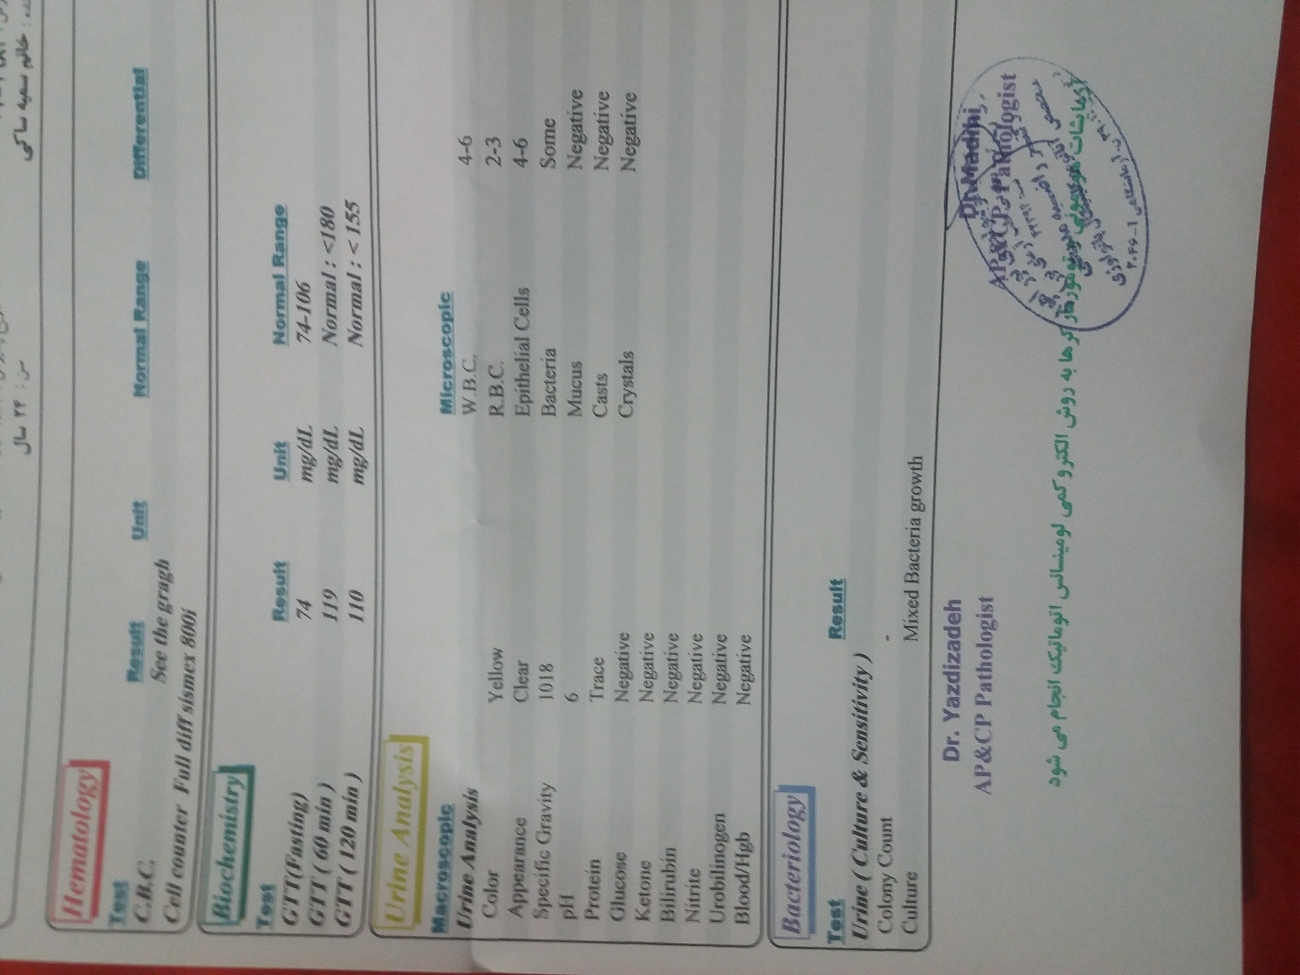 خانم سمیه ساکی
سن : ۲۴ سال
Hematology
Test Result Unit Normal Range Differential
C.B.C. See the gragh
Cell counter Full diff sismex 800i
Biochemistry
Test Result Unit Normal Range
GTT(Fasting) 74 mg/dL 74-106
GTT ( 60 min ) 119 mg/dL Normal : <180
GTT ( 120 min ) 110 mg/dL Normal : < 155
Urine Analysis
Macroscopic Microscopic
Urine Analysis W.B.C. 4-6
Color Yellow R.B.C. 2-3
Appearance Clear Epithelial Cells 4-6
Specific Gravity 1018 Bacteria Some
pH 6 Mucus Negative
Protein Trace Casts Negative
Glucose Negative Crystals Negative
Ketone Negative
Bilirubin Negative
Nitrite Negative
Urobilinogen Negative
Blood/Hgb Negative
Bacteriology
Test Result
Urine ( Culture & Sensitivity )
Colony Count -
Culture Mixed Bacteria growth
Dr. Yazdizadeh Dr.Madihi,
AP&CP Pathologist AP&CP Pathologist
آزمایشات هورمونی و تومور مارکرها به روش الکترو کمی لومینسانس اتوماتیک انجام می شود